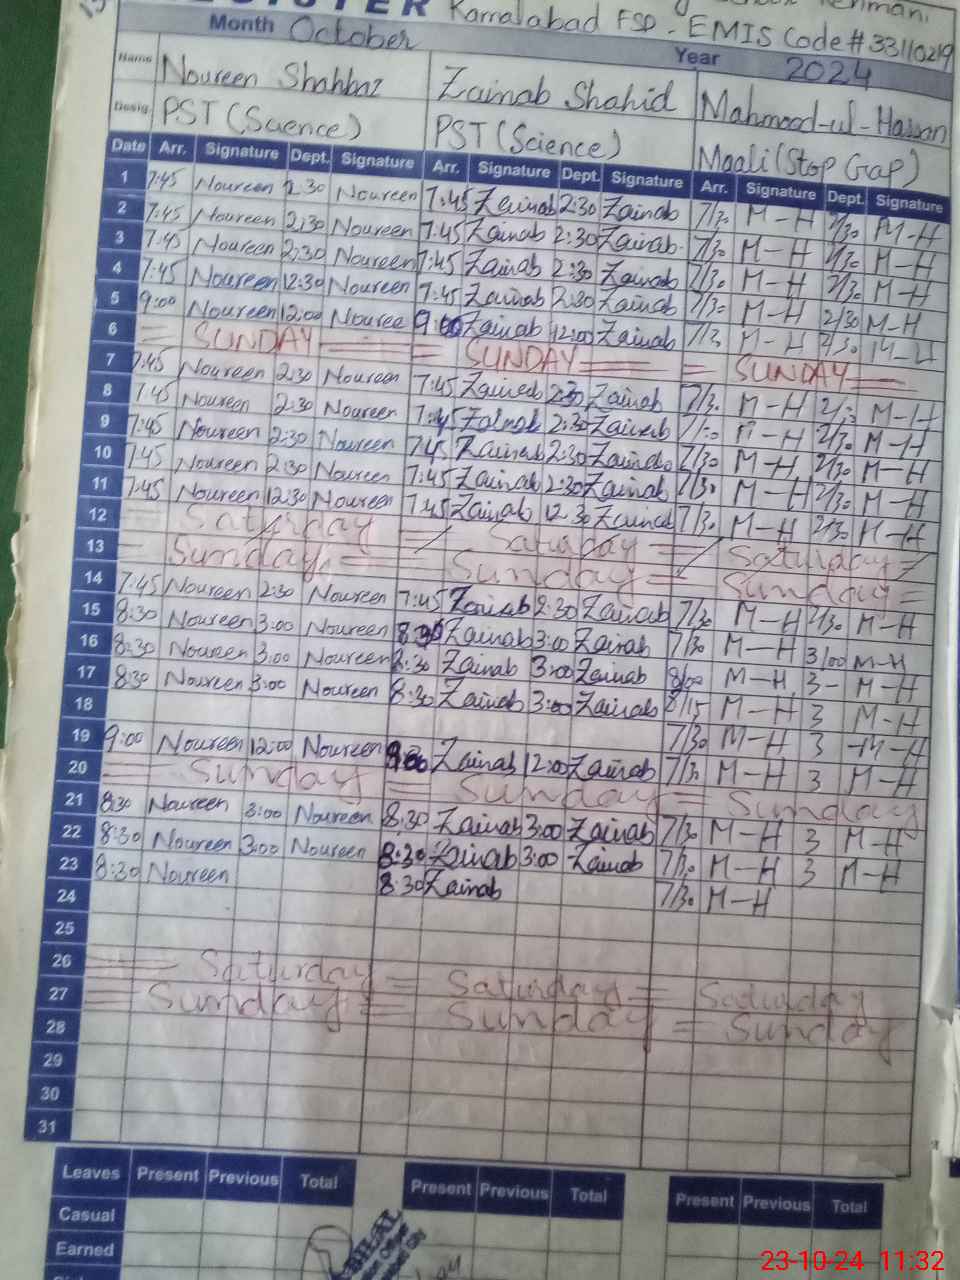 Kamalabad FSD - EMIS Code # 33110219
Month October Year 2024
Name Noureen Shahbaz Zainab Shahid Mahmood-ul-Hassan
Desig. PST (Science) PST (Science) Maali (Stop Gap)
Date Arr. Signature Dept. Signature Arr. Signature Dept. Signature Arr. Signature Dept. Signature
1 7:45 Noureen 2:30 Noureen 7:45 Zainab 2:30 Zainab 7/30 M-H 2/30 M-H
2 7:45 Noureen 2:30 Noureen 7:45 Zainab 2:30 Zainab 7/30 M-H 2/30 M-H
3 7:45 Noureen 2:30 Noureen 7:45 Zainab 2:30 Zainab 7/30 M-H 2/30 M-H
4 7:45 Noureen 12:30 Noureen 7:45 Zainab Zainab 7/30 M-H 2/30 M-H
5 9:00 Noureen 12:00 Nouree 9:00 Zainab 12:00 Zainab 7/3 M-H 2/30 M-H
6 = SUNDAY = SUNDAY = = SUNDAY =
7 7:45 Noureen 2:30 Noureen 7:45 Zainab 2:30 Zainab 7/30 M-H M-H
8 7:45 Noureen 2:30 Noureen 7:45 Zainab 2:30 Zainab M-H 2/30 M-H
9 7:45 Noureen 2:30 Noureen 7:45 Zainab 2:30 Zainab 7/30 M-H 2/30 M-H
10 7:45 Noureen 2:30 Noureen 7:45 Zainab 2:30 Zainab 7/30 M-H 2/30 M-H
11 7:45 Noureen 12:30 Noureen 7:45 Zainab 12:30 Zainab 7/30 M-H 2/30 M-H
12 = Saturday = Saturday = Saturday =
13 = Sunday = Sunday = Sunday =
14 7:45 Noureen 2:30 Noureen 7:45 Zainab 2:30 Zainab 7/30 M-H 2/30 M-H
15 8:30 Noureen 3:00 Noureen 8:30 Zainab 3:00 Zainab 7/30 M-H 3/00 M-H
16 8:30 Noureen 3:00 Noureen 8:30 Zainab 3:00 Zainab 8/00 M-H 3 M-H
17 8:30 Noureen 3:00 Noureen 8:30 Zainab 3:00 Zainab 8/15 M-H 3 M-H
18 7/30 M-H 3 M-H
19 9:00 Noureen 12:00 Noureen 9:00 Zainab 12:00 Zainab 7/30 M-H 3 M-H
20 = Sunday = Sunday = Sunday
21 8:30 Noureen 3:00 Noureen 8:30 Zainab 3:00 Zainab 7/30 M-H 3 M-H
22 8:30 Noureen 3:00 Noureen 8:30 Zainab 3:00 Zainab 7/30 M-H 3 M-H
23 8:30 Noureen 8:30 Zainab 7/30 M-H
24
25
26 = Saturday = Saturday = Saturday
27 = Sunday = Sunday = Sunday
28
29
30
31
Leaves Present Previous Total Present Previous Total Present Previous Total
Casual
Earned
23-10-24 11:32